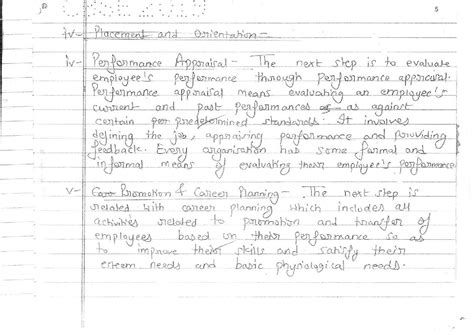 iv- Placement and Orientation -
iv- Performance Appraisal - The next step is to evaluate
employee's performance through performance appraisal.
Performance appraisal means evaluating an employee's
current and past performances as against
certain predetermined standards. It involves
defining the job, appraising performance and providing
feedback. Every organisation has some formal and
informal means of evaluating their employee's performance
v- Promotion & Career Planning - The next step is
related with career planning which includes all
activities related to promotion and transfer of
employees based on their performance so as
to improve their skills and satisfy their
esteem needs and basic physiological needs.